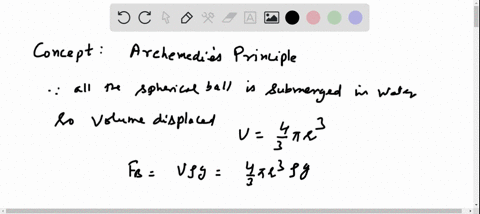 Concept: Archemedie's Principle
∵ all the spherical ball is submerged in water
So volume displaced
V = 4/3 πr³
FB = Vρg = 4/3 πr³ ρg